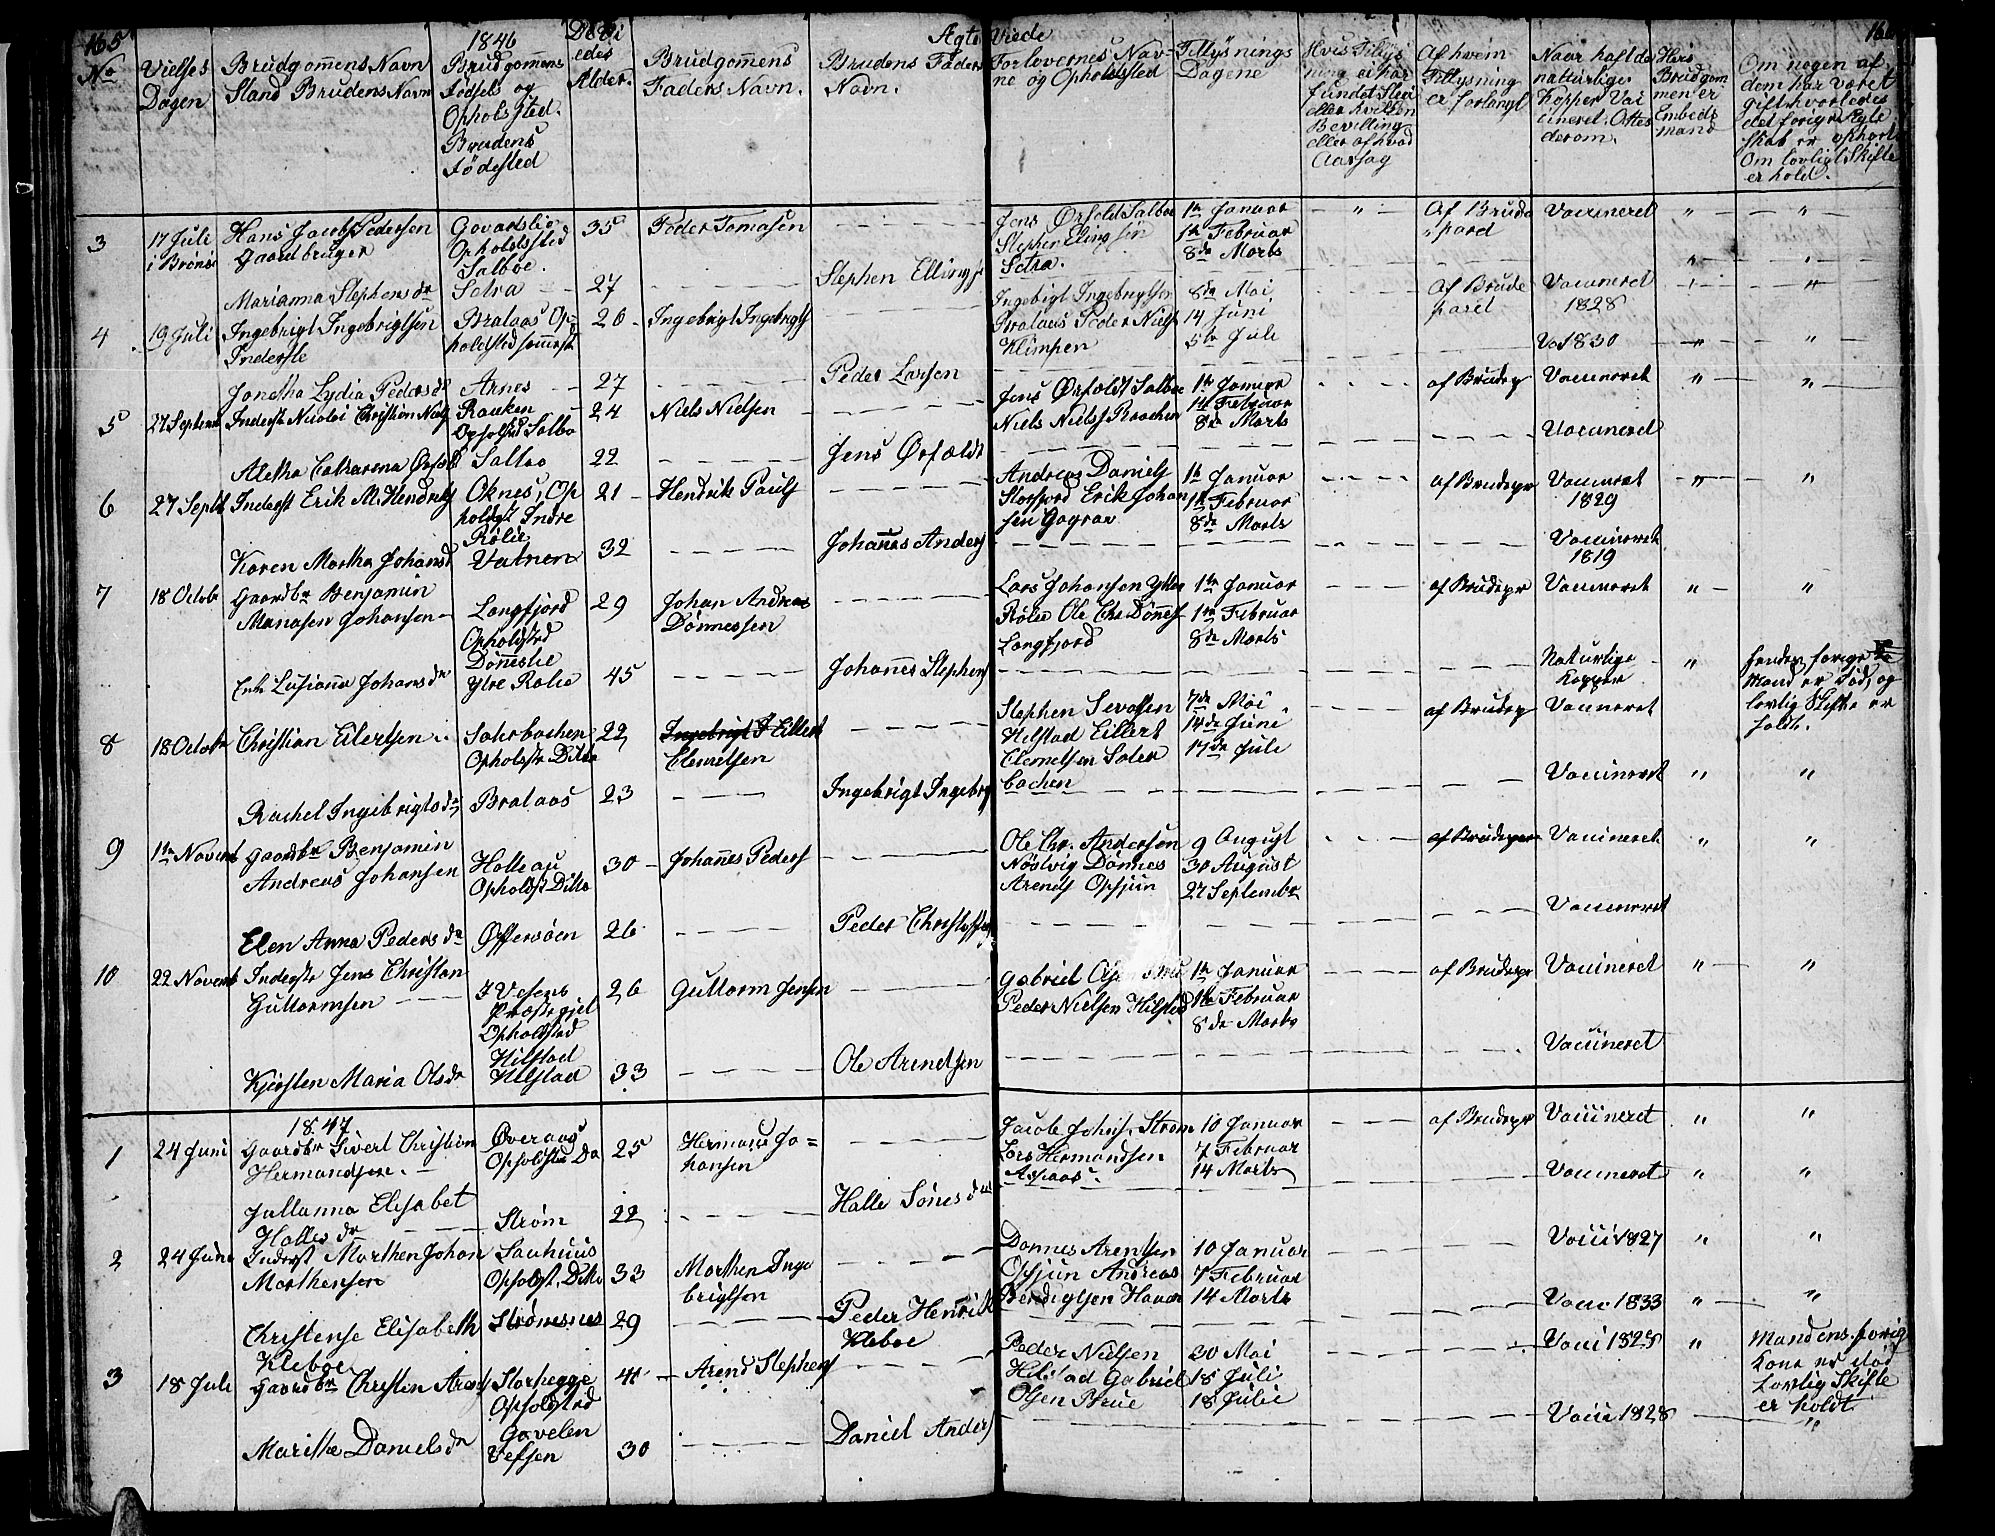 165
Ægte Viede
166
1846
No
Vielses
Dagen
Brudgom̅ens Navn
Stand Brudens Navn
Brudgom̅ens
Fødsels og
Opholssted.
Brudens
Fødested
Alder.
Brudgom̅ens
Faders Navn.
Brudens Faders
Navn.
Forlovernes Nav-
ne og Opholdsted
Tillysnings
Dagene
Hvis Tillys
ning ei har
fundet Sted
eller hvilken
Bevilling
eller af hvad
Aarsag
Af hvem
Tillysning
er forlangt
Naar hafde
naturlige
Kopper Vac
cineret. Attes
derom.
Hvis
Brudgom
men er
Embeds
mand
Om nogen af
dem har været
gift hvorledes
det forige Ægte
skab er ophørt
Om lovligt Skifte
er hold.
3
17 Juli
i Brønø
Hans Jacob Pedersen
Gaardbruger
Opholdssted
Salboe.
35
Peder Tomasen
Jens Ørfeldt Salboe
Stephen Elingsen
Setra.
1te Januar
1te Februar
8de Marts
Af Brude
pared
Vaccineret
Marianna Stephensdr
Setra
27
Stephen Ellings
Vaccineret
1828
4
19 Juli
Ingebrigt Ingebrigtsen
Inderste
Brataas Op-
holdsted sammest
20
Ingebrigt Ingebrigts
Ingebrigt Ingebrigtsen
Brataas Peder Niels
Klimpen
8de Mai,
14 Juni
5te Juli
Af Brude
pared
Va 1830
Jonetha Lydia Pedersdr
Arnes
27
Peder Larsen
Vaccineret
5
27 Septem
Inderst Nicolai Christian Niels
Rauken
Opholsted Salbo
24
Niels Nielsen
Jens Ørfeldt Salboe
Niels Niels Raaken
1te Januar
1te Februar
8de Marts
af Brudep
Vaccineret
Aletha Catharena Ørfeld
Salbo
22
Jens Ørfeldt
6
27 Septb
Inderst Erik M. Hendriks
Oknes, Op
holdst Indre
Rølie
21
Hendrik Pauls
Andreas Daniels
Storfjord Erik Johan
sen
1te Januar
1te Februar
8de Marts
af Brudepr
Vaccineret
1829
Karen Martha Johansd
Vatnen
32
Johan̅es Anders
Vaccineret
1819
7
18 Octob
Gaardbr Benjamin
Manasen Johansen
Langfjord
Opholdsted
Døn̅eslie
29
Johan Andreas
Dønnessen
Lars Johansen Ytre
Rølie Ole Chr Døn̅es
Langfjord
1te Januar
1te Februar
8de Marts
af Brudepr
Vaccineret
Enk Lusianna Johansdr
Ytre Rølie
45
Johan̅es Stephens
Naturlige
Kopper
hendes forige
Mand er død, og
lovlig Skifte er
holdt.
8
18 Octobr
Christian Eilertsen
Saterbachen
Opholdst Ditto
22
Eilert
Clemetsen
Stephen
Hilstad Eillert
Clemetsen Sater
bachen
7de Mai
14de Juni
17de Juli
af Brudep
Vaccineret
Rachel Ingebrigtsdr
Brataas
23
Ingebrigt Ingebrig
Vaccineret
9
1te Novemb
Gaardbr Benjamin
Andreas Johansen
Holleau
Opholdst Ditto
30
Johan̅es Peders
Ole Chr. Andersen
Nødvig Dønnes
Arends Opsjun
9 August
30 August
27 Septembr
af Brudepar
Vaccineret
Elen Anna Pedersdr
Offersøen
26
Peder Christoffers
Vaccineret
10
22 Novemb
Inderste Jens Christian
Guttormsen
I Vefsens
Præstegjel
Opholdsted
Hilstad
26
Guttorm Jensen
Gabriel
Peder Nielsen Hilstad
1te Januar
1te Februar
8de Marts
af Brudepr
Vaccineret
Kjersten Maria Olsdr
Hilstad
33
Ole Arendsen
Vaccineret
1847
1
24 Juni
Gaardbr Sivert Christian
Hermandsen.
Overaas
Opholdste Do
25
Herman̅ Jo=
hansen
Jacob Johns. Strøm
Lars Hermandsen
10 Januar
7 Februar
14 Marts
af Brudepr
Vaccineret
Jullanna Elisabet
Hallesdr
Strøm
22
Vaccineret
2
24 Juni
Inderst Marthen Johan
Marthensen
Sauhuus
Opholdst. Ditto
33
Marthen Inge
brigtsen
Dønnes Arentsen
Opsjun Andreas
10 Januar
7 Februar
14 Marts
Vacci 1827
Christense Elisabeth
Kleboe
Strømsnes
29
Peder Henrik
Kleboe
Vacci 1833
3
18 Juli
Gaardbr Christen Arends
Storhegge
Opholdsted
41
Arend Stephens
Peder Nielsen
Hilstad Gabriel
Olsen Brue
30 Mai
18 Juli
18 Julie
Vacci 1828
Mandens forig
Kone er død
Lovlig Skifte
er holdt
Marithe Danielsdr
Vefsen
30
Daniel Anders
Vacci 1828